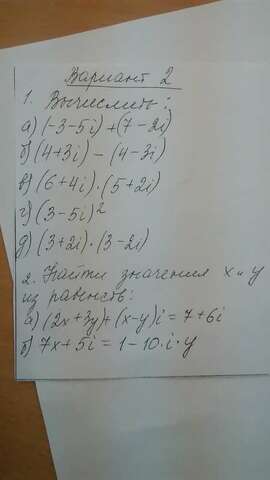 Вариант 2
1. Вычислить:
а) (-3-5i)+(7-2i)
б) (4+3i)-(4-3i)
в) (6+4i)·(5+2i)
г) (3-5i)²
д) (3+2i)·(3-2i)
2. Найти значения x и y
из равенств:
а) (2x+3y)+(x-y)i=7+6i
б) 7x+5i=1-10·i·y